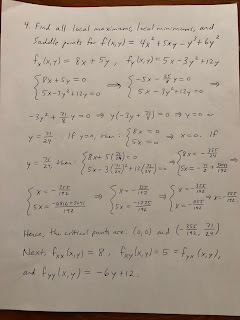 4. Find all local maximums, local minimums, and
saddle points for f(x,y) = 4x² + 5xy - y³ + 6y²
fx(x,y) = 8x + 5y, fy(x,y) = 5x - 3y² + 12y
{8x + 5y = 0 ⇒ {-5x - 25/8 y = 0 ⇒
{5x - 3y² + 12y = 0 {5x - 3y² + 12y = 0
-3y² + 71/8 y = 0 ⇒ y(-3y + 71/8) = 0 ⇒ y = 0 or
y = 71/24. If y = 0, then: {8x = 0 ⇒ x = 0. If
{5x = 0
y = 71/24, then: {8x + 5(71/24) = 0 ⇒ {8x = -355/24 ⇒
{5x - 3(71/24)² + 12(71/24) = 0
{x = -355/192 ⇒ {x = -355/192 ⇒ {x = -355/192 ⇒ x = -355/192
{5x = -1775/192 {x = -355/192
Hence, the critical points are: (0,0) and (-355/192, 71/24).
Next, fxx(x,y) = 8, fxy(x,y) = 5 = fyx(x,y),
and fyy(x,y) = -6y + 12.